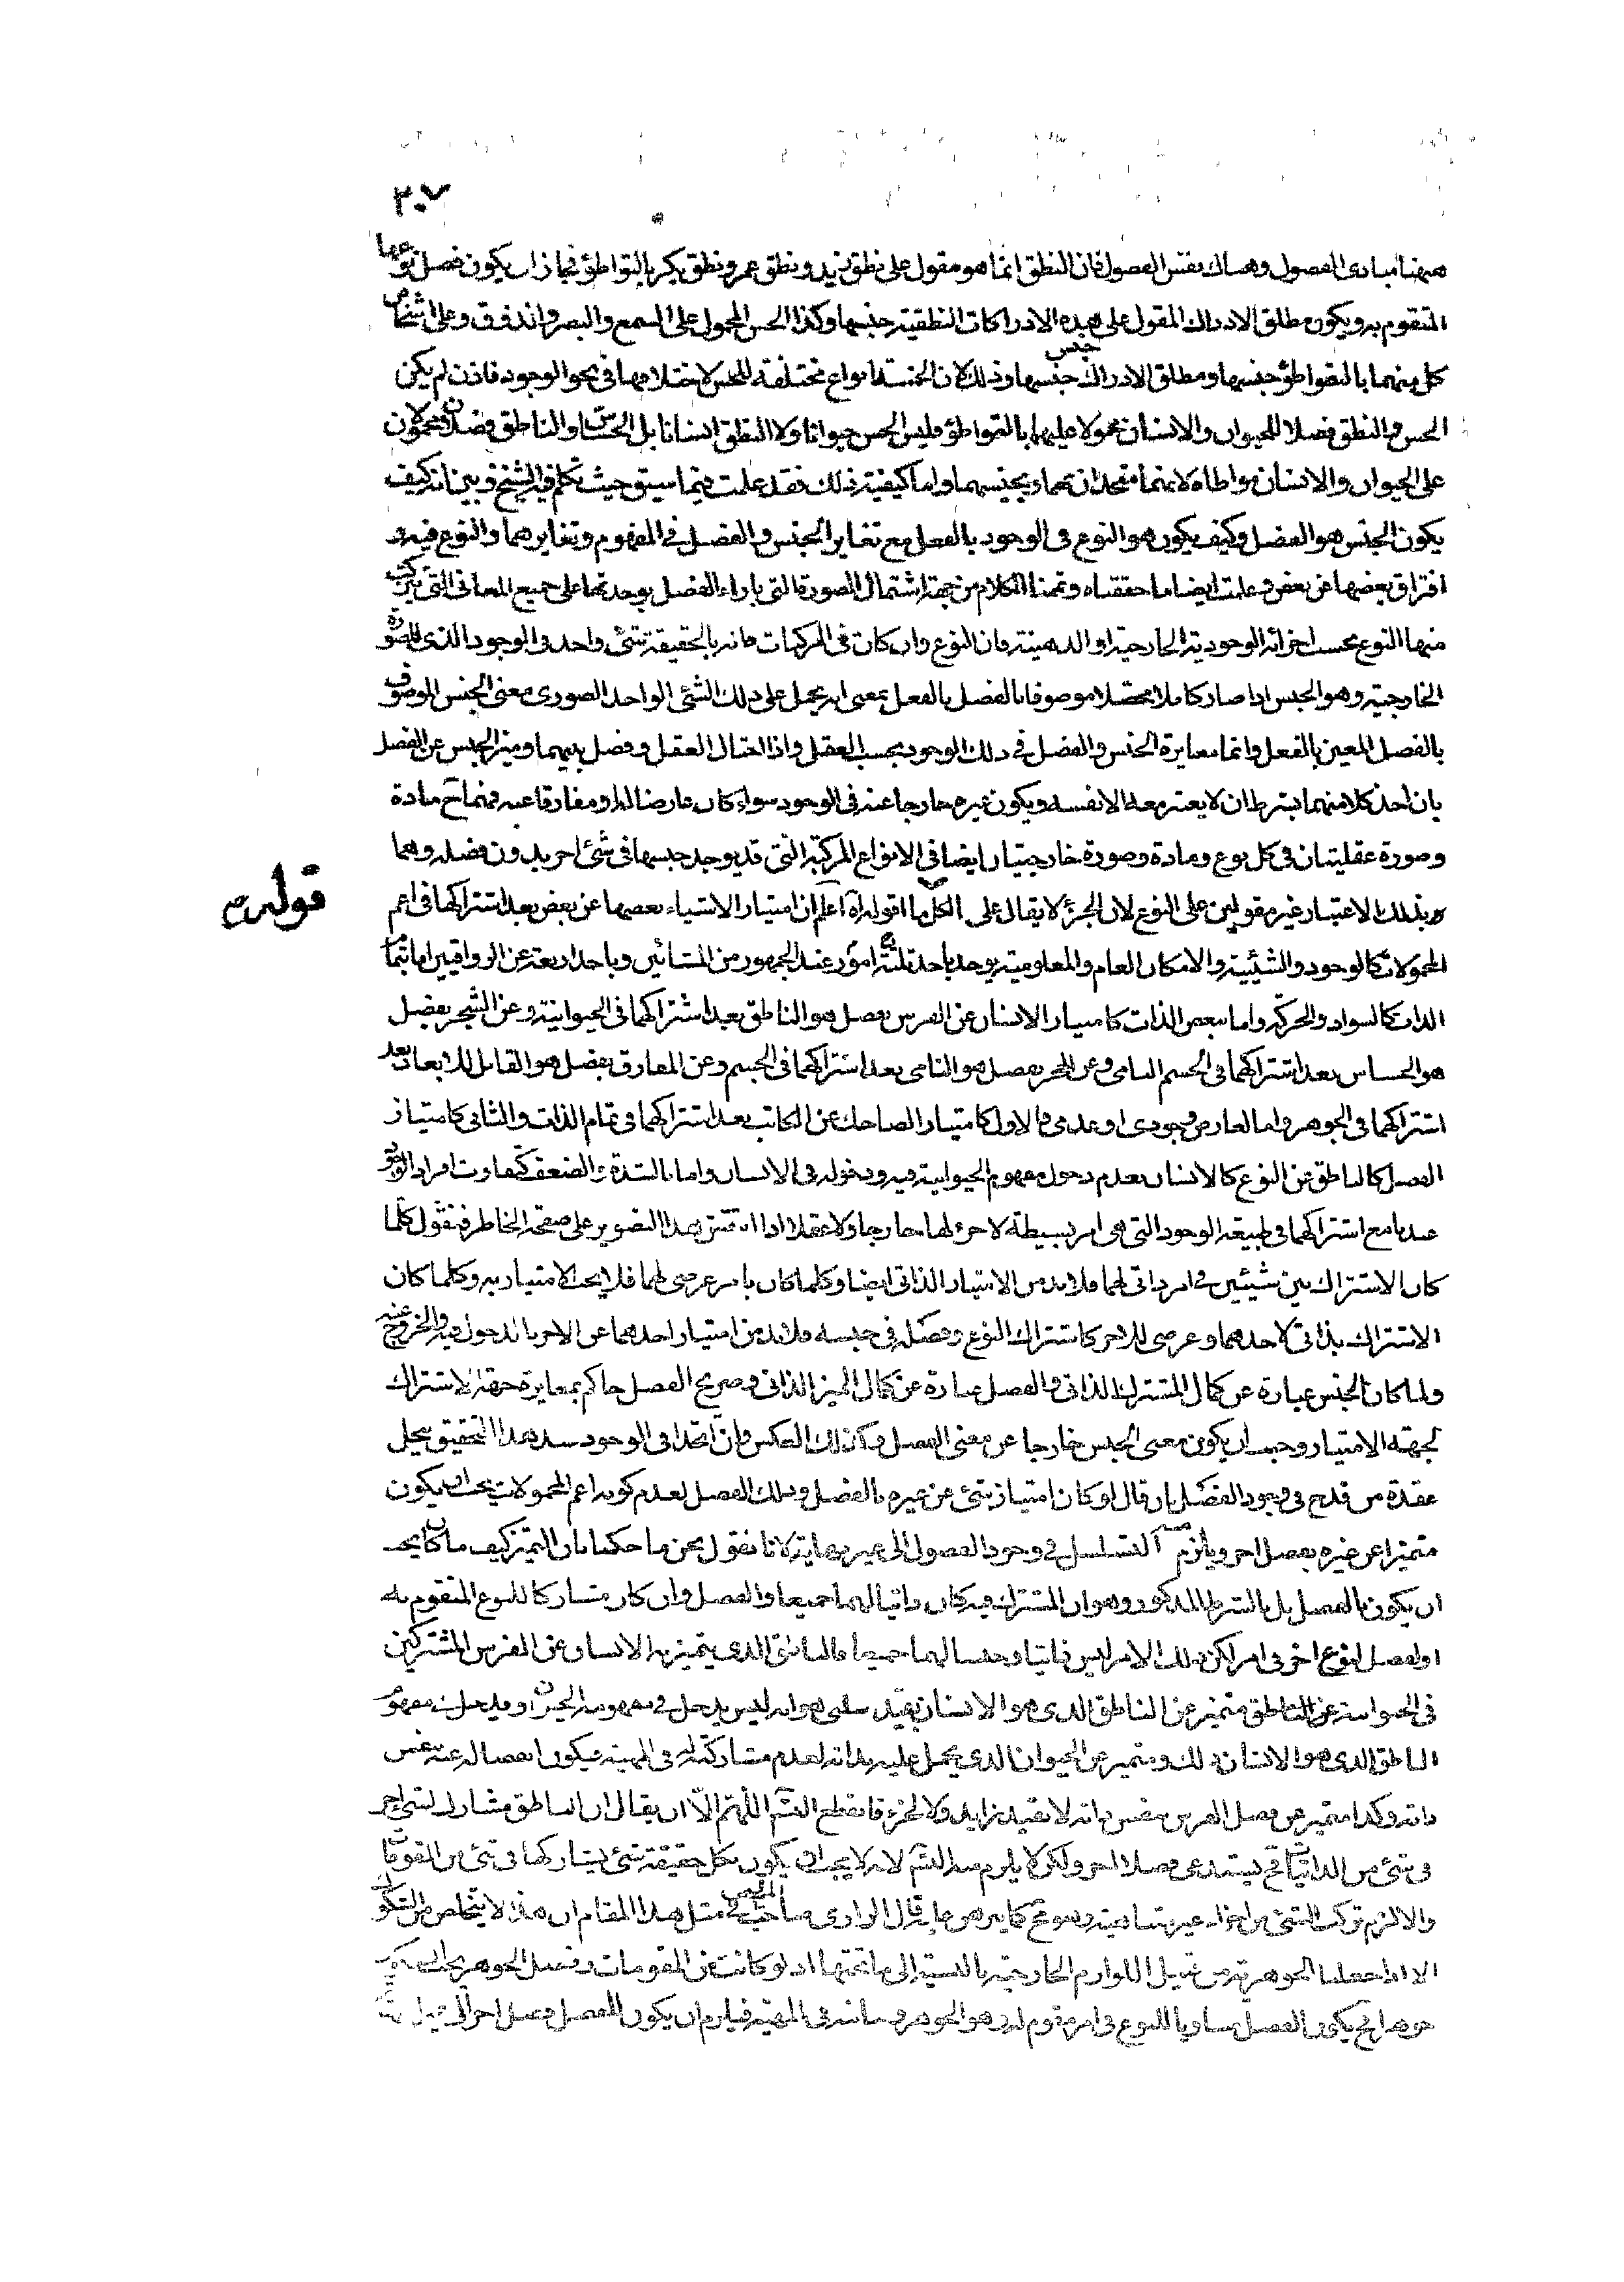 ٣٠٧
ههنا مبادى الفصول وهناك نفس الفصول فان النطق انما هو مقول على نطق زيد ونطق عمر ونطق بكر بالتواطؤ فجاز ان يكون فصل نوعها
المتقوم به ويكون مطلق الادراك المقول على هذه الادراكات النطقية جنسها وكذا الحس المحمول على السمع والبصر والذوق وعلى اشخاص
كل منهما بالتواطؤ جنسها ومطلق الادراك جنس جنسها وذلك لان الخمسة انواع مختلفة للحس لاختلافها فى نحو الوجود فاذن لم يكن
الحس والنطق فصلا للحيوان والانسان محمولا عليهما بالتواطؤ فليس الحس حيوانا ولا النطق انسانا بل الحساس والناطق فصلان محمولان
على الحيوان والانسان مواطاة لانهما متحدان بهما وبجنسهما واما كيفية ذلك فقد علمت فيما سبق حيث تكلم فيه الشيخ وبين انه كيف
يكون الجنس هو الفصل وكيف يكون هو النوع فى الوجود بالفعل مع تغاير الجنس والفصل فى المفهوم وتغايرهما والنوع فيه و
افتراق بعضها عن بعض وعلمت ايضا ما حققناه وتممنا الكلام من جهة اشتمال الصورة التى بازاء الفصل بوحدتها على جميع المعانى التى يتركب
منها النوع بحسب اجزائه الوجودية الخارجية او الذهنية فان النوع وان كان فى المركبات فانه بالحقيقة شئ واحد فى الوجود الذى للصورة
الخارجية وهو الجنس اذا صار كاملا محصلا موصوفا بالفصل بالفعل بمعنى انه يحمل على ذلك الشئ الواحد الصورى معنى الجنس الموصوف
بالفصل المعين بالفعل وانما مغايرة الجنس والفصل فى ذلك الوجود بحسب العقل واذا احتال العقل وفصل بينهما وميز الجنس عن الفصل
بان اخذ كلا منهما بشرط ان لا يعتبر معه الا نفسه ويكون غيره خارجا عنه فى الوجود سواء كان عارضا له او مفارقا عنه فهما ح مادة
وصورة عقليتان فى كل نوع ومادة وصورة خارجيتان ايضا فى الانواع المركبة التى قد يوجد جنسها فى شئ اخر بدون فصله وهما
وبذلك الاعتبار غير مقولين على النوع لان الجزء لا يقال على الكل اقول اعلم ان امتياز الاشياء بعضها عن بعض بعد اشتراكها فى اعم
قوله
المحمولات كالوجود والشيئية والامكان العام والمعلومية يوجد باحد ثلثة امور عند الجمهور من المشائين وباحد اربعة عن الرواقيين اما بتمام
الذات كالسواد والحركة واما ببعض الذات كامتياز الانسان عن الفرس بفصل هو الناطق بعد اشتراكهما فى الحيوانية وعن الشجر بفصل
هو الحساس بعد اشتراكهما فى الجسم النامى وعن الحجر بفصل هو النامى بعد اشتراكهما فى الجسم وعن المفارق بفصل هو القابل للابعاد بعد
اشتراكهما فى الجوهر واما العارض وجودى او عدمى فالاول كامتياز الضاحك عن الكاتب بعد اشتراكهما فى تمام الذات والثانى كامتياز
الفصل كالناطق عن النوع كالانسان بعدم دخول مفهوم الحيوانية فيه ودخوله فى الانسان واما بالشدة والضعف كتفاوت افراد الوجود
عندنا مع اشتراكهما فى طبيعة الوجود التى هى امر بسيطة لا جزء لها خارجا ولا عقلا اذا انتقش هذا التصوير على صفحة الخاطر فنقول كلما
كان الاشتراك بين شيئين فى امر ذاتى لهما فلا بد من الامتياز الذاتى ايضا وكلما كان بامر عرضى لهما فلا يجب الامتياز به وكلما كان
الاشتراك بذاتى لاحدهما وعرضى للاخر كاشتراك النوع وفصله فى جنسه فلا بد من امتياز احدهما عن الاخر بالدخول فيه والخروج عنه
ولما كان الجنس عبارة عن كمال المشترك الذاتى والفصل عبارة عن كمال المميز الذاتى وصريح الفصل حاكم بمغايرة جهة الاشتراك
لجهة الامتياز وجب ان يكون معنى الجنس خارجا عن معنى الفصل وكذلك العكس وان اتحدا فى الوجود بهذا التحقيق ينحل
عقدة من قدح فى وجود الفصل بان قال لو كان امتياز شئ عن غيره بالفصل وذلك الفصل لعدم كونه اعم المحمولات يجب ان يكون
متميزا عن غيره بفصل اخر ويلزم التسلسل فى وجود الفصول الى غير نهاية لانا نقول نحن ما حكمنا بان التميز كيف ما كان يجب
ان يكون بالفصل بل بالشرط المذكور وهو ان المشترك فيه كان ذاتيا لهما جميعا والفصل وان كان مشاركا للنوع المتقوم به
او لفصل لنوع اخر فى امر لكن ذلك الامر ليس ذاتيا وجنسا لهما جميعا فالناطق الذى يتميز به الانسان عن الفرس المشتركين
فى الحيوانية عن الناطق متميز عن الناطق الذى هو الانسان بقيد سلبى هو انه ليس يدخل فى مفهومه الحيوان ويدخل فى مفهوم
الناطق الذى هو الانسان ذلك ويتميز عن الحيوان الذى يحمل عليه بذاته لعدم مشاركته له فى المهية فيكون انفصاله عنه بنفس
ذاته وكذا متميز عن فصل الفرس بنفس ذاته لا بقيد زايد ولا لجزء فانقطع التسـ اللهم الا ان يقال ان الناطق مشارك لشئ اخر
فى شئ من الذاتيات فح يستدعى فصلا اخر ولكن لا يلزم منه التسـ لانه لا يجب ان يكون لكل حقيقة شئ يشاركها فى شئ من المقومات
والا لزم تركب الشئ من اجزاء غير متناهية وهو مح كما برهن عليه قال الرازى صاحب فى مثل هذا المقام ان هذا لا يتخلص من الشكوك
الا اذا جعلنا الجوهرية من قبيل اللوازم الخارجية بالنسبة الى ما تحتها اذ لو كانت من المقومات وفصل الجوهر يجب ان يكون
جوهرا فح يكون الفصل مساويا للنوع فى امر مقوم له هو الجوهر و فى المهية فيلزم ان يكون للفصل فصل اخر